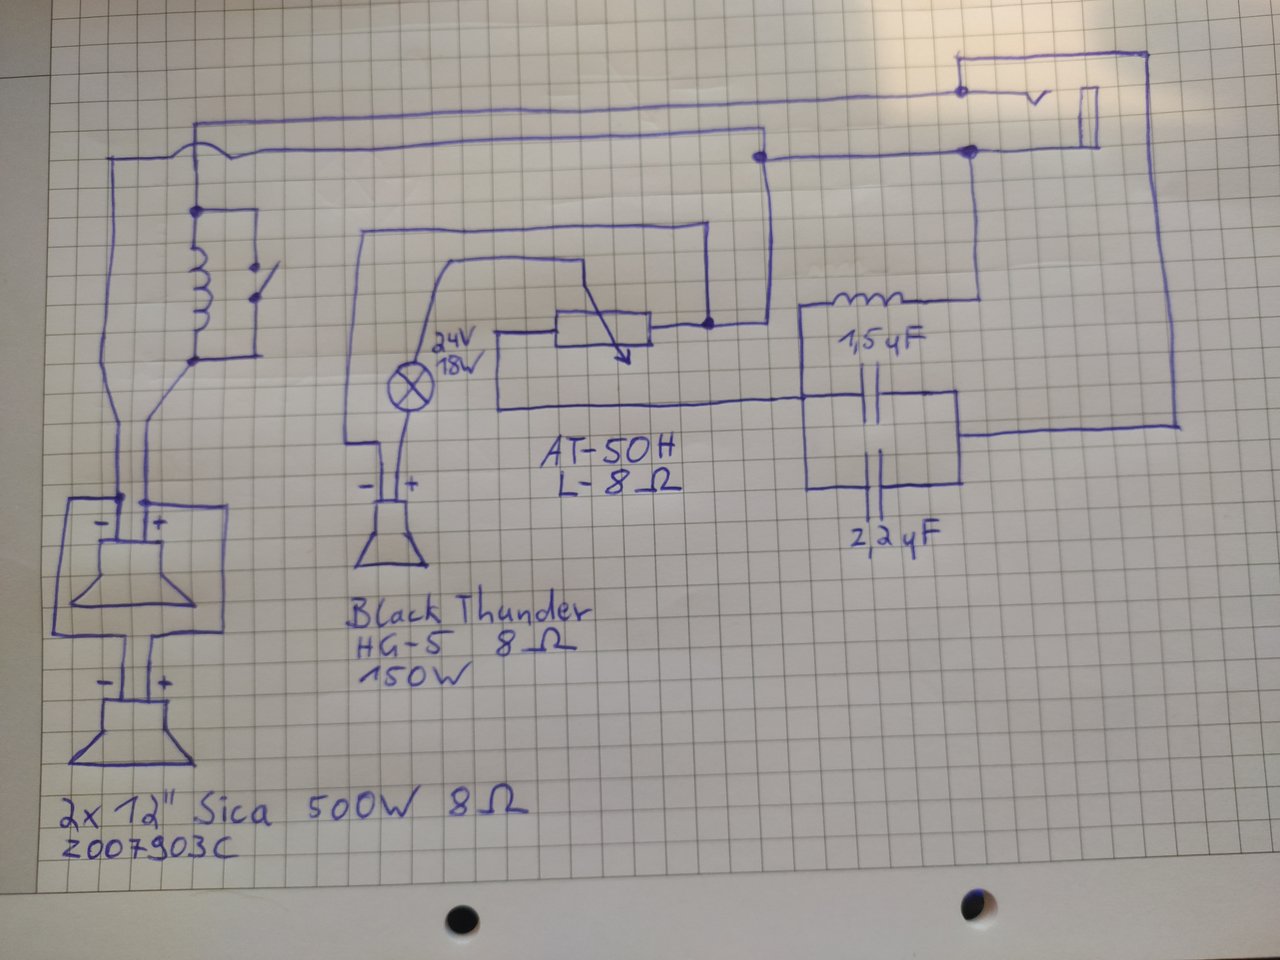 24V
18W
1,5µF
AT-50H
L-8Ω
- +
2,2µF
- +
Black Thunder
HG-5 8Ω
150W
- +
2x 12" Sica 500W 8Ω
Z007903C